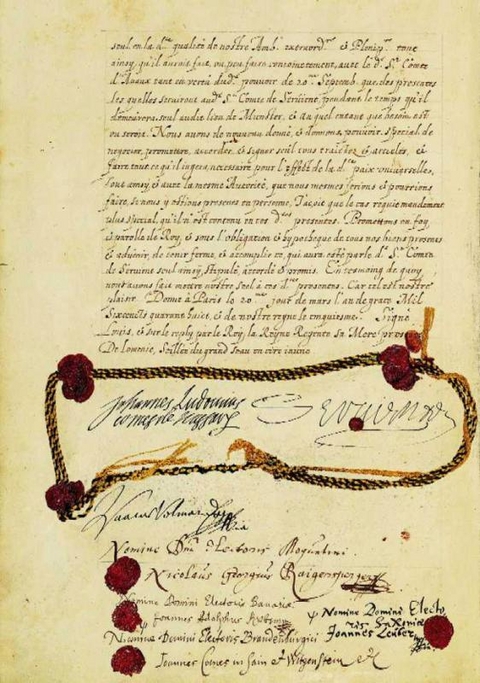 seul en la d.te qualité de nostre Amb.r extraord.re & Plenip.re tout
ainsy, qu'il auroit fait, ou peu faire conjoinctement, avec le d.t S.r Comte
d'Avaux tant en vertu dud.t pouvoir de 20.me Septemb. que des presentes
les quelles serviront aud.t S.r Comte de Servient, pendant le temps qu'il
demeurera, seul audit lieu de Munster, & en quel entant que besoin est
ou seroit. Nous avons de nouveau donné, & donnons, pouvoir, special de
negocier, promettre, accorder, & signer seul tous traictez & articles, &
faire tout ce qu'il jugera, necessaire pour l'effect de la d.te paix universelle,
tout ainsy, & avec la mesme Auctorité, que nous mesmes ferions & pourrions
faire, si nous y estions presens en personne, Jaçoit que le cas requie mandement
plus special, qu'il n'est contenu en ces d.tes presentes. Promettons en foy
& parolle de Roy, & sous l'obligation & hypotheque de tous nos biens presens
& advenir, de tenir ferme, & accomplir ce, qui aura esté par le d.t S.r Comte
de Servient seul ainsy, stipulé, accordé & promis. En tesmoing de quoy
nous avons fait mettre nostre seel à ces d.tes presentes. Car tel est nostre
plaisir. Donné à Paris le 20.me jour de mars l'an de grace Mil
Sixcents quarant huict, & de nostre regne le cinquiesme. Signé
Louis, & sur le reply par le Roy, la Royne Regente sa Mere
De Lomenie, Seillés du grand seau en cire jaune
Johannes Ludovicus
comes de Nassaw
Servient
Isaacus Volmar
Nomine Dni Electoris Moguntini.
Nicolaus Georgius Raigersperger
Nomine Domini Electoris Bavariae
Joannes Adolphus
Nomine Domini Electo
ris Saxoniae
Joannes Leuber
Nomine Domini Electoris Brandenburgici
Joannes Comes in Sain et Witgenstein